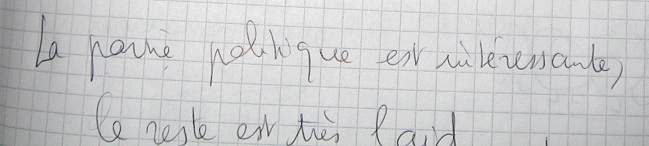 La partie politique est intéressante,
le reste est très laid